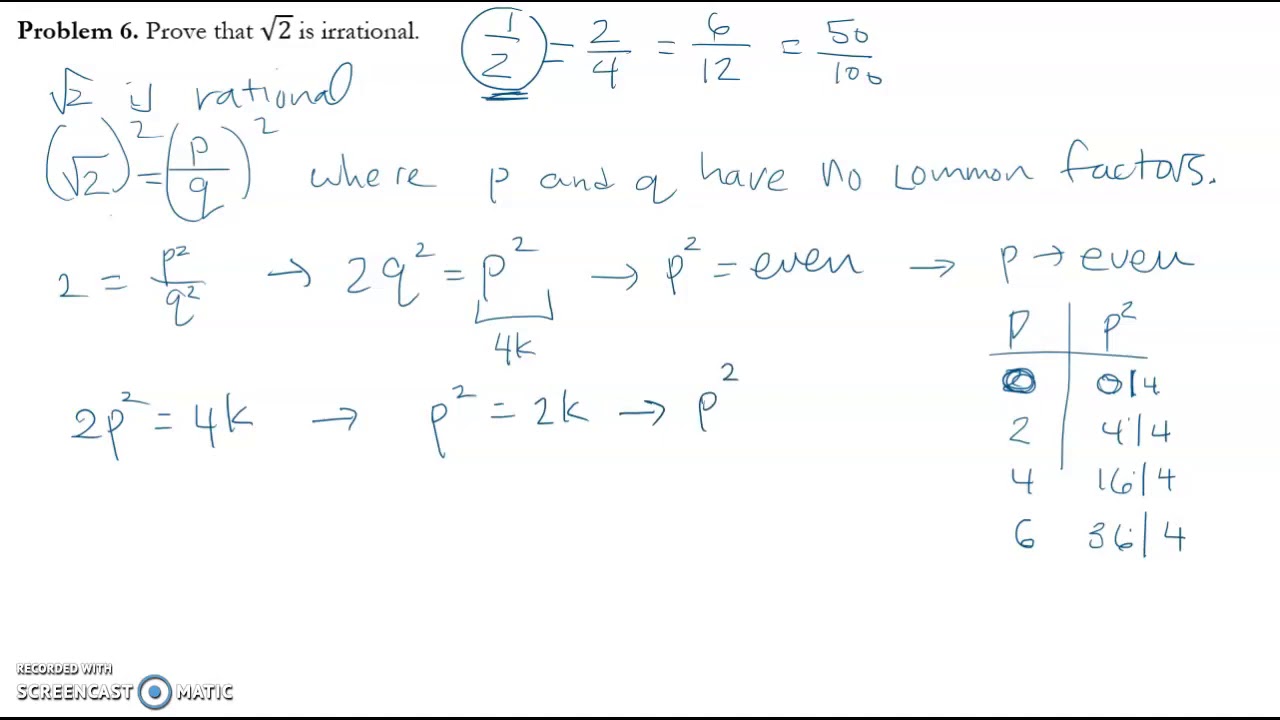 Problem 6. Prove that √2 is irrational.
1/2 = 2/4 = 6/12 = 50/100
√2 is rational
(√2)² = (p/q)² where p and q have no common factors.
2 = p²/q² → 2q² = p² → p² = even → p → even
4k
p | p²
0 | 0|4
2 | 4|4
4 | 16|4
6 | 36|4
2p² = 4k → p² = 2k → p²
RECORDED WITH
SCREENCAST MATIC